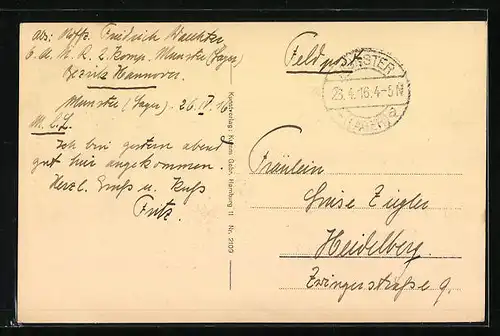 abs: Uffz. Friedrich Waechter
6. d. R. R. 2. Komp. Munster (Lager)
Bezirk Hannover.
Munster (Lager) 26. IV. 16
M. l. L.
Ich bin gestern abend
gut hier angekommen.
Herzl. Gruß u. Kuß
Fritz.
Kunstverlag: Gebr. Hamburg 11 Nr. 2109
Feldpost
MUNSTER
26.4.16.4-5N
(LAGER) a
Fräulein
Luise Ziegler
Heidelberg.
Zwingerstraße 9.